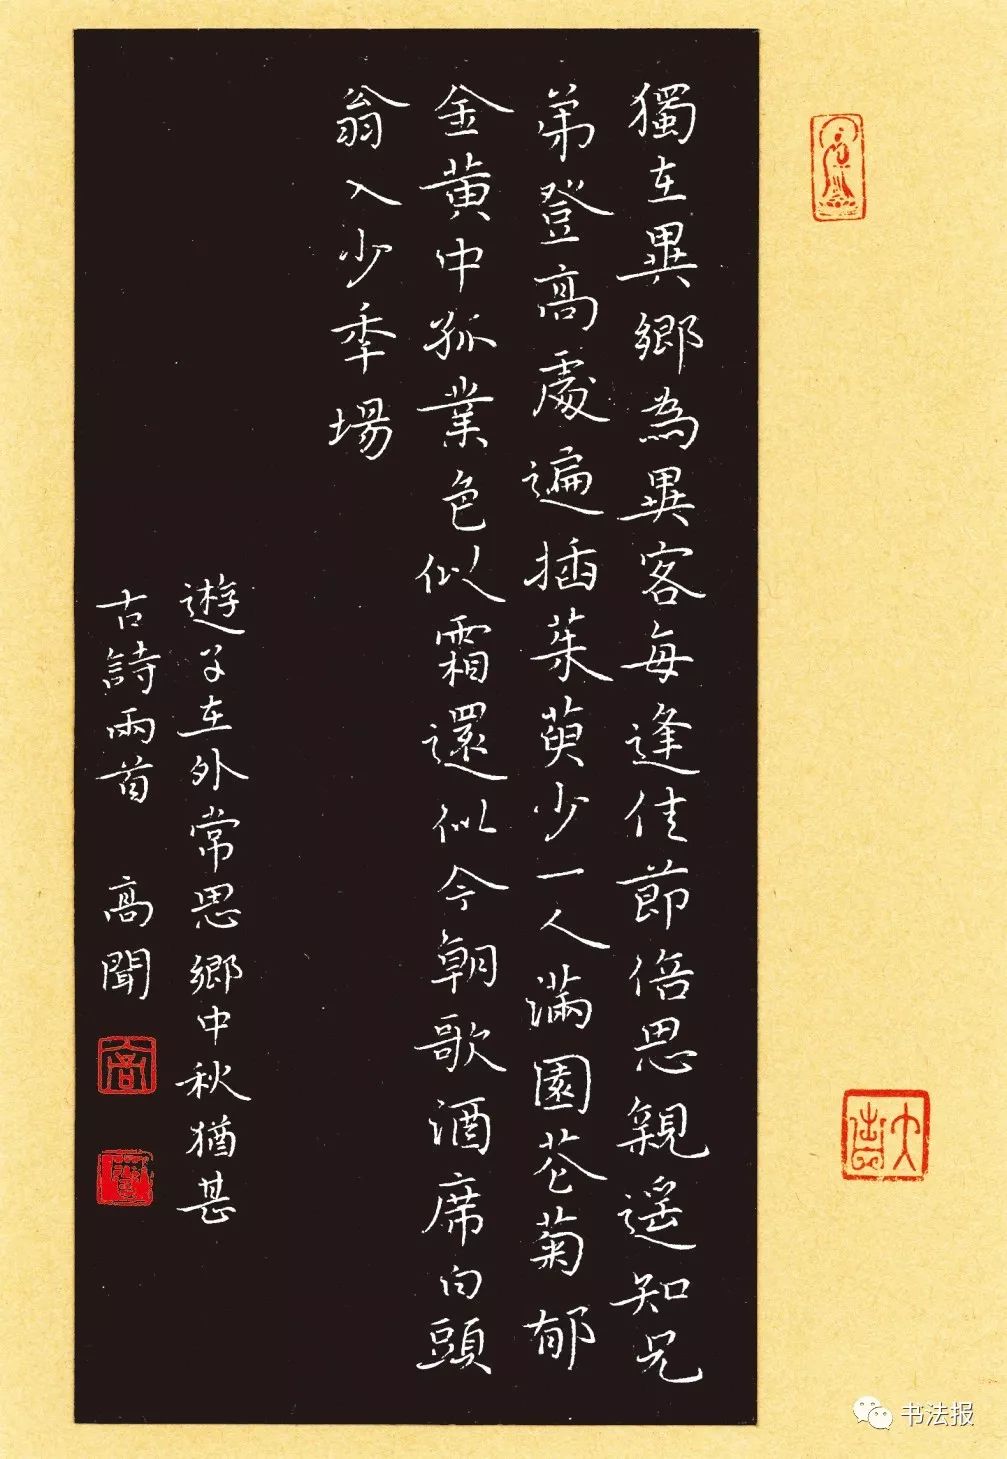 獨在異鄉為異客每逢佳節倍思親遥知兄
弟登高處遍插茱萸少一人滿園花菊郁
金黄中孤業色似霜還似今朝歌酒席白頭
翁入少年場
遊子在外常思鄉中秋猶甚
古詩兩首 高聞
书法报